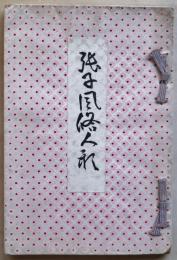 張子風俗人形